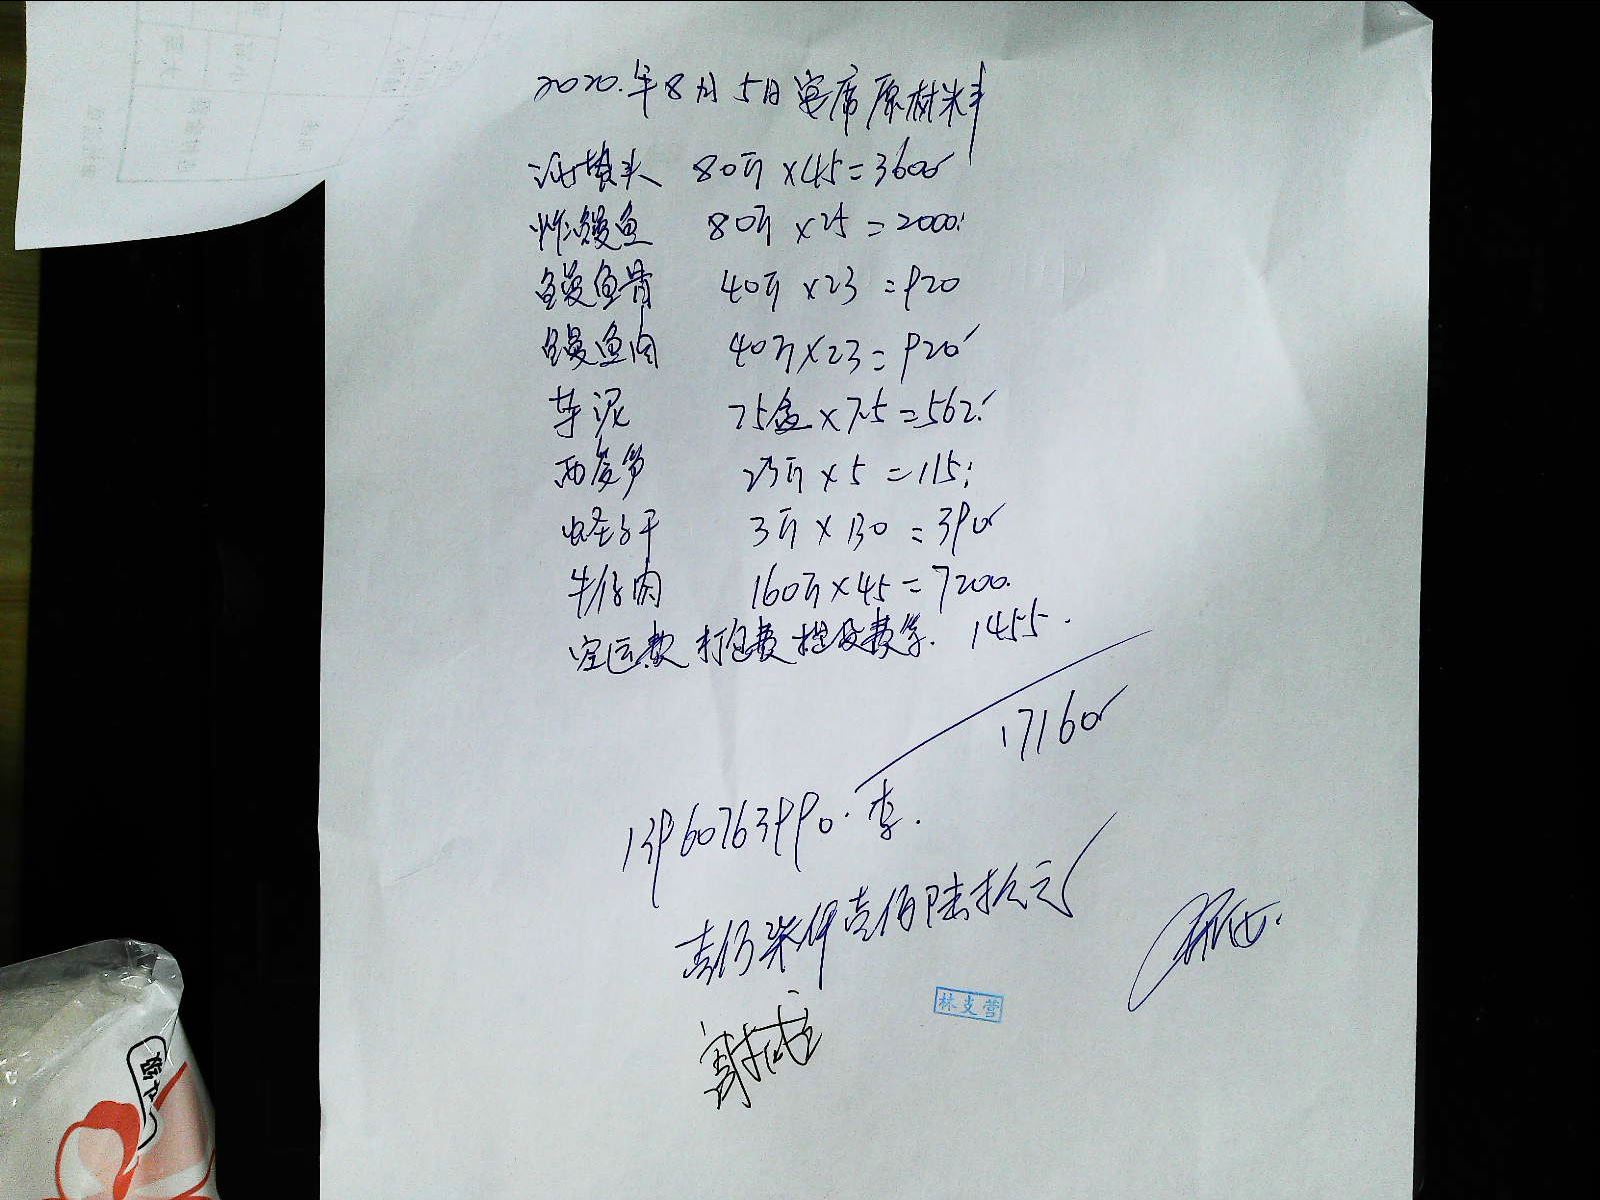 2020.年8月5日宴席原材料
海蛏头 80斤×45=3600
炸鳗鱼 80斤×25=2000
鳗鱼骨 40斤×23=920
鳗鱼肉 40斤×23=920
芋泥 75盒×7.5=562
西芦笋 23斤×5=115
蛏子干 3斤×130=390
牛仔肉 160斤×45=7200.
空运费 打包费 提货费等. 1455.
17160
13960763990.李.
壹万柒仟壹佰陆拾元
林支营